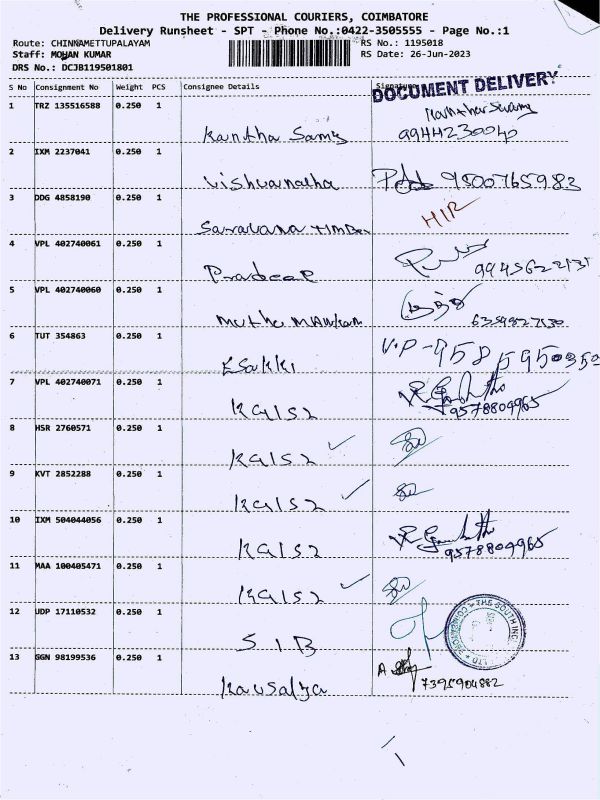 THE PROFESSIONAL COURIERS, COIMBATORE
Delivery Runsheet - SPT - Phone No.:0422-3505555 - Page No.:1
Route: CHINNAMETTUPALAYAM RS No.: 1195018
Staff: MOHAN KUMAR RS Date: 26-Jun-2023
DRS No.: DCJB119501801
DOCUMENT DELIVERY
S No Consignment No Weight PCS Consignee Details Signature
1 TRZ 135516588 0.250 1
Kantha Samy 9944230040
2 IXM 2237041 0.250 1
Vishwanatha 9500765983
3 DDG 4858190 0.250 1
Saravana timber HIR
4 VPL 402740061 0.250 1
Pradeep
5 VPL 402740060 0.250 1
6 TUT 354863 0.250 1
Esakki V.P-9585950350
7 VPL 402740071 0.250 1
KG1S2 9578809965
8 HSR 2760571 0.250 1
KG1S2
9 KVT 2852288 0.250 1
KG1S2
10 IXM 504044056 0.250 1
KG1S2 9578809965
11 MAA 100405471 0.250 1
KG1S2
12 UDP 17110532 0.250 1
S I B THE SOUTH IND
13 GGN 98199536 0.250 1
Kausalya 7395904882